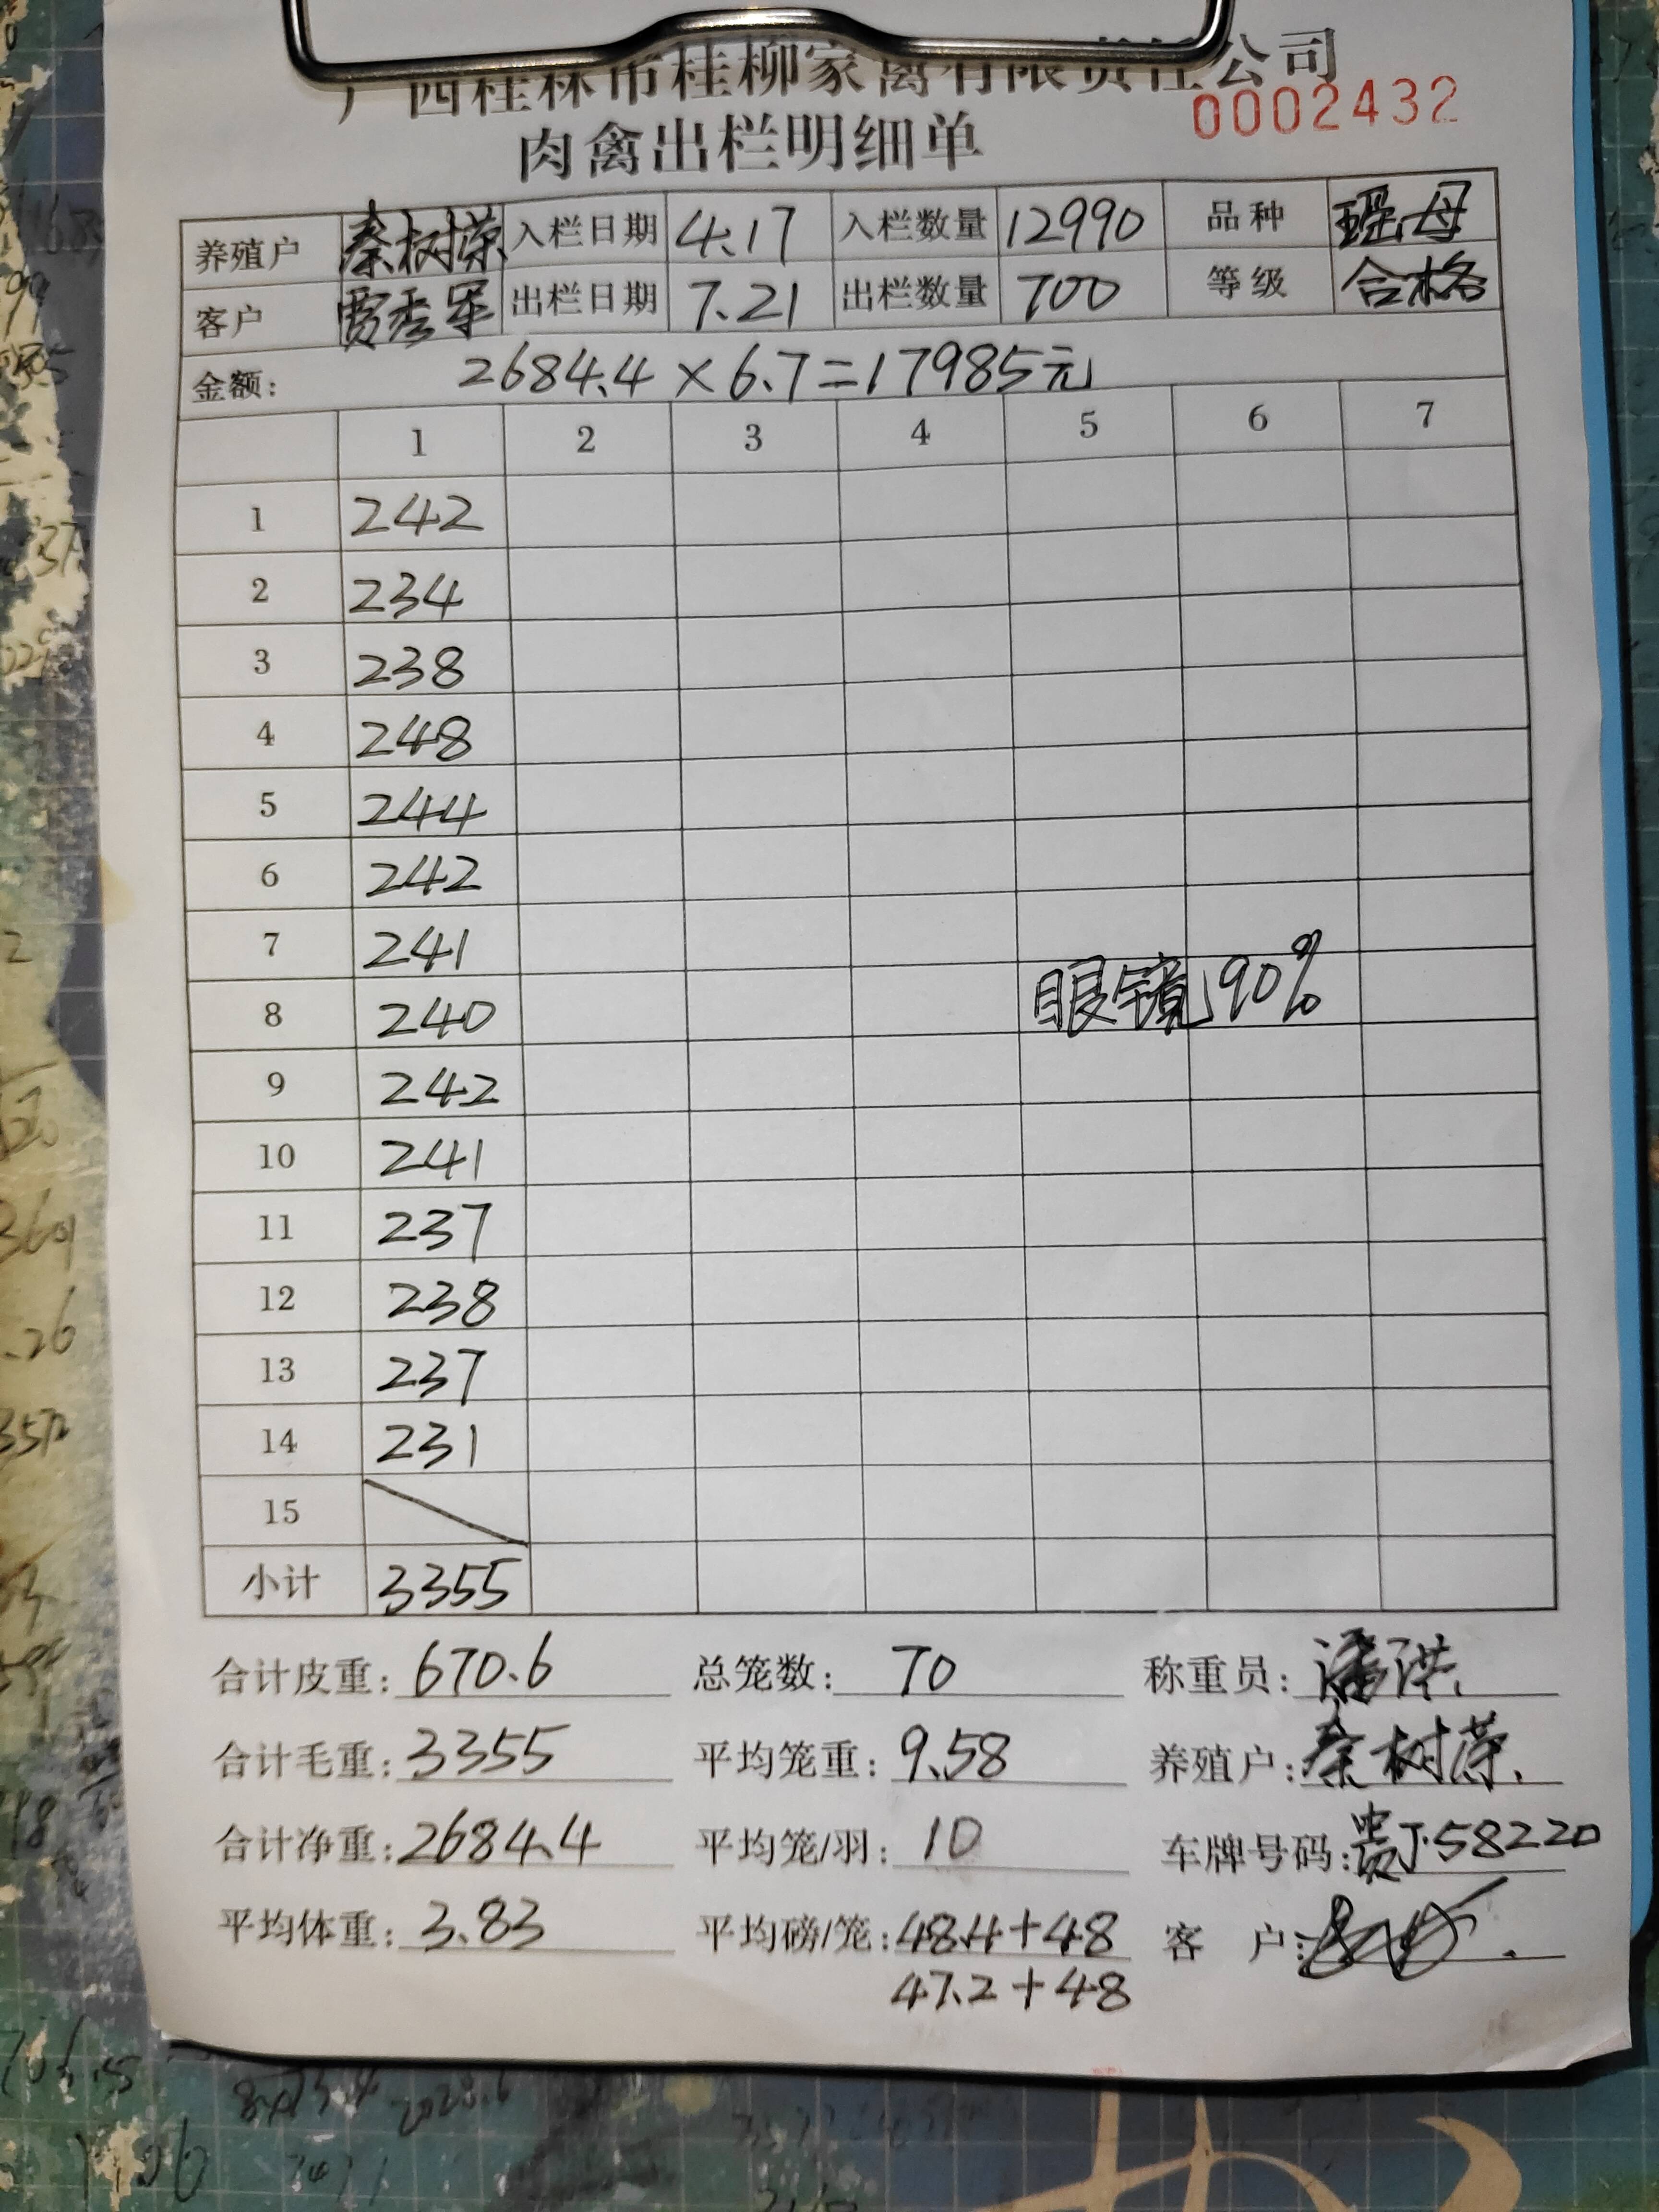 广西桂林市桂柳家禽有限责任公司
0002432
肉禽出栏明细单
养殖户 秦树荣 入栏日期 4.17 入栏数量 12990 品种 瑶母
客户 贾秀军 出栏日期 7.21 出栏数量 700 等级 合格
金额: 2684.4×6.7=17985元
1 2 3 4 5 6 7
1 242
2 234
3 238
4 248
5 244
6 242
7 241
8 240
眼镜90%
9 242
10 241
11 237
12 238
13 237
14 231
15
小计 3355
合计皮重: 670.6 总笼数: 70 称重员: 潘洪.
合计毛重: 3355 平均笼重: 9.58 养殖户: 秦树荣.
合计净重: 2684.4 平均笼/羽: 10 车牌号码: 贵J·58220
平均体重: 3.83 平均磅/笼: 48.4+48 客 户:
47.2+48